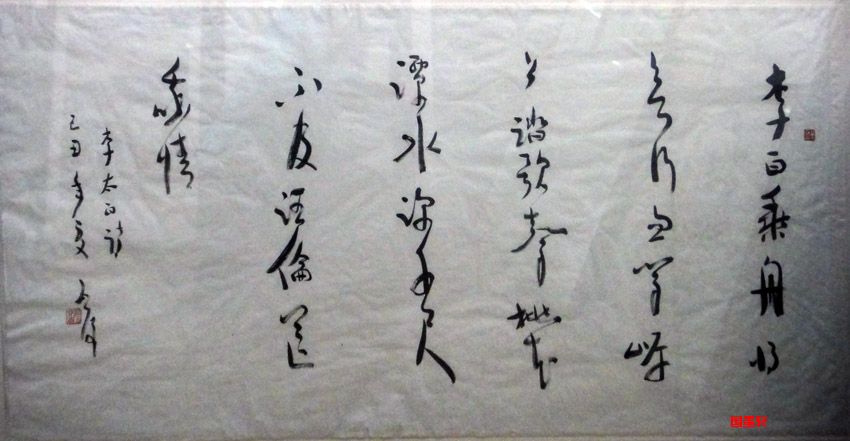 李白乘舟将
欲行忽聞岸
上踏歌聲桃花
潭水深千尺
不及汪倫送
我情
李太白詩
己丑年夏